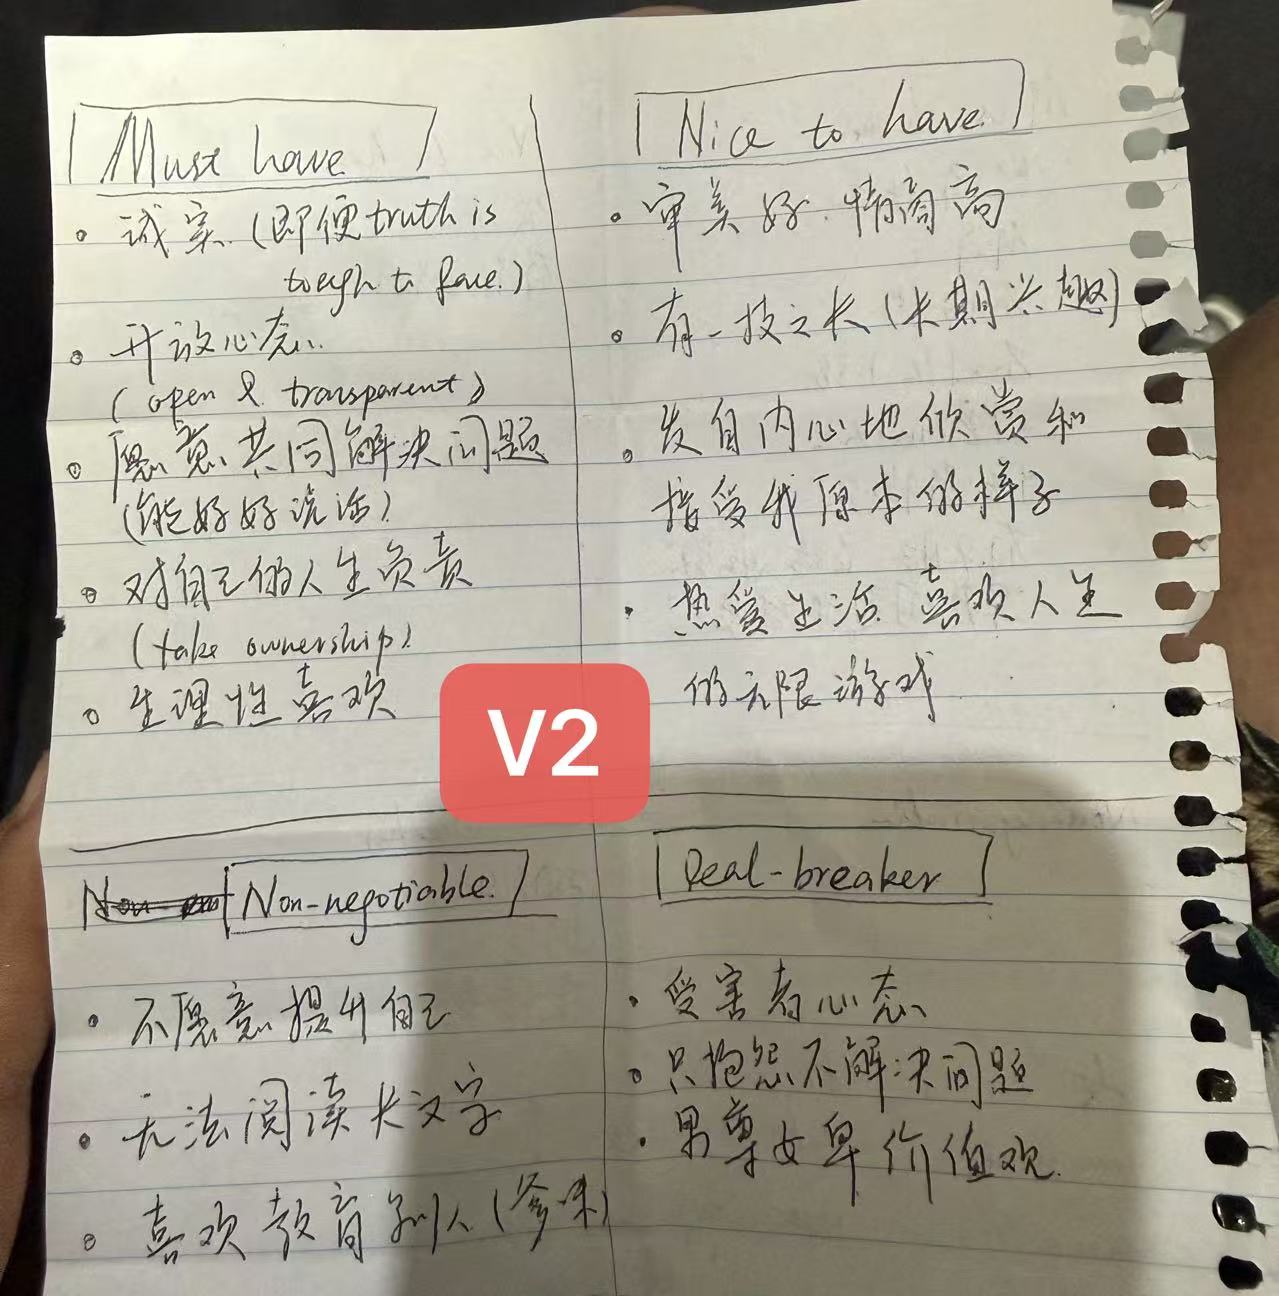 Must have
诚实 (即便truth is
tough to face.)
开放心态
(open & transparent)
愿意共同解决问题
(能好好说话)
对自己的人生负责
(take ownership)
生理性喜欢
Nice to have
审美好 情商高
有一技之长 (长期兴趣)
发自内心地欣赏和
接受我原本的样子
热爱生活 喜欢人生
的无限游戏
V2
Non-negotiable
不愿意提升自己
无法阅读长文字
喜欢教育别人 (爹味)
Deal-breaker
受害者心态
只抱怨不解决问题
男尊女卑价值观